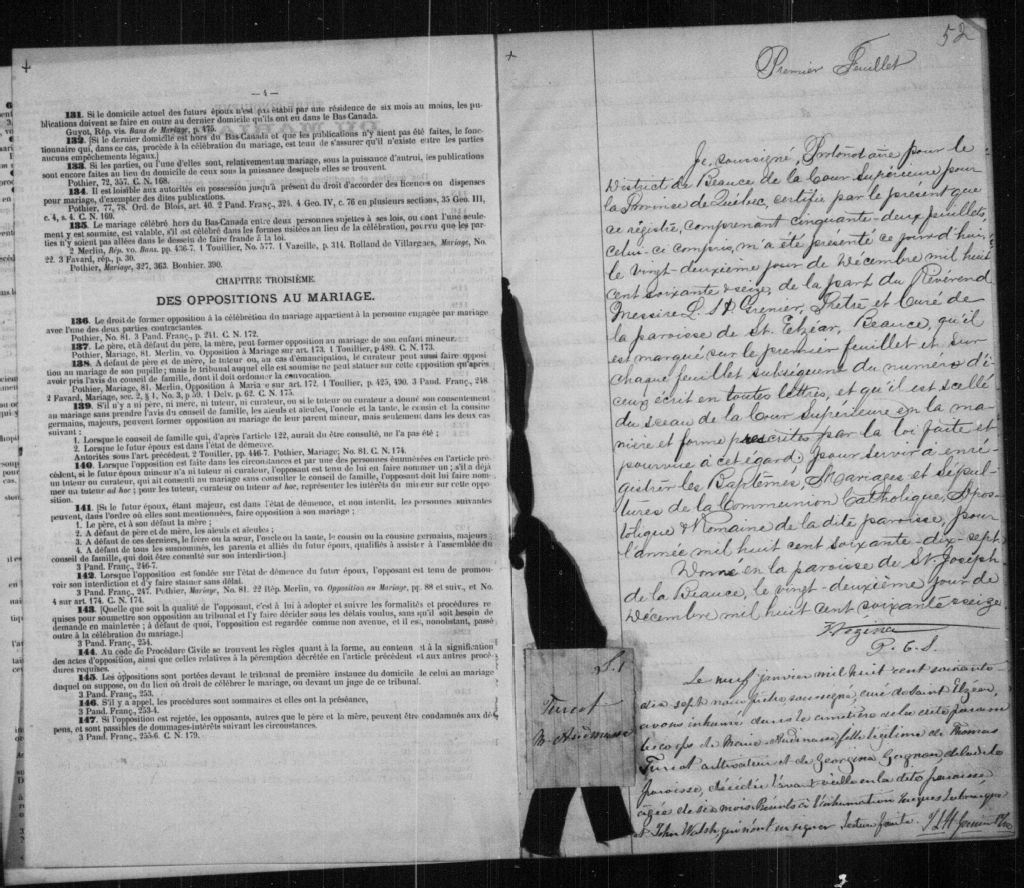 — 4 —
131. Si le domicile actuel des futurs époux n'est pas établi par une résidence de six mois au moins, les pu-
blications doivent se faire en outre au dernier domicile qu'ils ont eu dans le Bas Canada.
Guyot, Rép. vis. Bans de Mariage, p. 475.
132. [Si le dernier domicile est hors du Bas-Canada et que les publications n'y aient pas été faites, le fonc-
tionnaire qui, dans ce cas, procède à la célébration du mariage, est tenu de s'assurer qu'il n'existe entre les parties
aucuns empêchements légaux.]
133. Si les parties, ou l'une d'elles sont, relativement au mariage, sous la puissance d'autrui, les publications
sont encore faites au lieu du domicile de ceux sous la puissance desquels elles se trouvent.
Pothier, 72, 357. C. N. 168.
134. Il est loisible aux autorités en possession jusqu'à présent du droit d'accorder des licences ou dispenses
pour mariage, d'exempter des dites publications.
Pothier, 77, 78. Ord. de Blois, art. 40. 2 Pand. Franç., 324. 4 Geo. IV, c. 76 en plusieurs sections, 35 Geo. III,
c. 4, s. 4. C. N. 169.
135. Le mariage célébré hors du Bas-Canada entre deux personnes sujettes à ses lois, ou dont l'une seule-
ment y est soumise, est valable, s'il est célébré dans les formes usitées au lieu de la célébration, pourvu que les par-
ties n'y soient pas allées dans le dessein de faire fraude à la loi.
2 Merlin, Rép. vo. Bans, pp. 456-7. 1 Touiller, No. 577. 1 Vazeille, p. 314. Rolland de Villargues, Mariage, No.
22. 3 Favard, rép., p. 30.
Pothier, Mariage, 327, 363. Bouhier. 390.
CHAPITRE TROISIÈME.
DES OPPOSITIONS AU MARIAGE.
136. Le droit de former opposition à la célébration du mariage appartient à la personne engagée par mariage
avec l'une des deux parties contractantes.
Pothier, No. 81. 3 Pand. Franç., p. 241. C. N. 172.
137. Le père, et à défaut du père, la mère, peut former opposition au mariage de son enfant mineur.
Pothier, Mariage, 81. Merlin, vo. Opposition à Mariage sur art. 173. 1 Touillier, p. 489. C. N. 173.
138. A défaut de père et de mère, le tuteur ou, au cas d'émancipation, le curateur peut aussi faire opposi-
tion au mariage de son pupille; mais le tribunal auquel elle est soumise ne peut statuer sur cette opposition qu'après
avoir pris l'avis du conseil de famille, dont il doit ordonner la convocation.
Pothier, Mariage, 81. Merlin, Opposition à Maria e sur art. 172. 1 Touillier, p. 425, 490. 3 Pand. Franç., 248.
2 Favard, Mariage, sec. 2, § 1, No. 3, p. 59. 1 Delv. p. 62. C. N. 175.
139. S'il n'y a ni père, ni mère, ni tuteur, ni curateur, ou si le tuteur ou curateur a donné son consentement
au mariage sans prendre l'avis du conseil de famille, les aïeuls et aïeules, l'oncle et la tante, le cousin et la cousine
germains, majeurs, peuvent former opposition au mariage de leur parent mineur, mais seulement dans les deux cas
suivant :
1. Lorsque le conseil de famille qui, d'après l'article 122, aurait du être consulté, ne l'a pas été ;
2. Lorsque le futur époux est dans l'état de démence.
Autorités sous l'art. précédent. 2 Touillier, pp. 446-7. Pothier, Mariage; No. 81. C. N. 174.
140. Lorsque l'opposition est faite dans les circonstances et par une des personnes énumérées en l'article pré-
cédent, si le futur époux mineur n'a ni tuteur ni curateur, l'opposant est tenu de lui en faire nommer un ; s'il a déjà
un tuteur ou curateur, qui ait consenti au mariage sans consulter le conseil de famille, l'opposant doit lui faire nom-
mer un tuteur ad hoc ; pour les tuteur, curateur ou tuteur ad hoc, représenter les intérêts du mineur sur cette oppo-
sition.
141. [Si le futur époux, étant majeur, est dans l'état de démence, et non interdit, les personnes suivantes
peuvent, dans l'ordre où elles sont mentionnées, faire opposition à son mariage ;
1. Le père, et à son défaut la mère ;
2. A défaut de père et de mère, les aïeuls et aïeules ;
3. A défaut de ces derniers, le frère ou la sœur, l'oncle ou la tante, le cousin ou la cousine germains, majeurs ;
4. A défaut de tous les susnommés, les parents et alliés du futur époux, qualifiés à assister à l'assemblée du
conseil de famille, qui doit être consulté sur son interdiction.]
3 Pand. Franç., 246-7.
142. Lorsque l'opposition est fondée sur l'état de démence du futur époux, l'opposant est tenu de promou-
voir son interdiction et d'y faire statuer sans délai.
3 Pand. Franç., 247. Pothier, Mariage, No. 81. 22 Rép. Merlin, vo. Opposition au Mariage, pp. 88 et suiv., et No.
4 sur art. 174. C. N. 174.
143. [Quelque soit la qualité de l'opposant, c'est à lui à adopter et suivre les formalités et procédures re-
quises pour soumettre son opposition au tribunal et l'y faire décider sous les délais voulus, sans qu'il soit besoin de
demande en mainlevée ; à défaut de quoi, l'opposition est regardée comme non avenue, et il est, nonobstant, passé
outre à la célébration du mariage.]
3 Pand. Franç., 254.
144. Au code de Procédure Civile se trouvent les règles quant à la forme, au contenu et à la signification
des actes d'opposition, ainsi que celles relatives à la péremption décrétée en l'article précédent et aux autres procé-
dures requises.
145. Les oppositions sont portées devant le tribunal de première instance du domicile de celui au mariage
duquel on suppose, ou du lieu où droit de célébrer le mariage, ou devant un juge de ce tribunal.
3 Pand. Franç., 253.
146. S'il y a appel, les procédures sont sommaires et elles ont la préséance,
3 Pand. Franç., 253-4.
147. Si l'opposition est rejetée, les opposants, autres que le père et la mère, peuvent être condamnés aux dé-
pens, et sont passibles de dommages-intérêts suivant les circonstances.
3 Pand. Franç., 255-6. C. N. 179.
52
Premier Feuillet
Je, soussigné, Protonotaire pour le
District de Beauce de la Cour Supérieure pour
la Province de Québec, certifie par le présent que
ce régistre, comprenant cinquante-deux feuillets,
celui-ci compris, m'a été présenté ce jourd'hui,
le vingt-deuxième jour de Décembre mil huit
cent soixante & seize, de la part du Révérend
Messire L. St D. Grenier, Prêtre et Curé de
la paroisse de St. Elzéar, Beauce, qu'il
est marqué sur le premier feuillet et sur
chaque feuillet subséquent du numéro d'i-
ceux écrit en toutes lettres, et qu'il est scellé
du sceau de la Cour Supérieure en la ma-
nière et forme prescrites par la loi faite et
pourvue à cet égard, pour servir à enré-
gistrer les Baptêmes, Mariages et Sépul-
tures de la Communion Catholique, Apos-
tolique & Romaine de la dite paroisse, pour
l'année mil huit cent soixante-dix-sept.
Donné en la paroisse de St. Joseph
de la Beauce, le vingt deuxième jour de
Décembre mil huit cent soixante & seize
P. C. S.
S. 1
Turcot
M. Audinasse
Le neuf janvier mil huit cent soixante-
dix sept nous prêtre soussigné curé de Saint Elzéar,
avons inhumé dans le cimetière de la dite paroisse
le corps de Marie-Audinasse fille légitime de Thomas
Turcot cultivateur et de Georgina Gagnon, de la dite
paroisse, décédée l'avant veille en la dite paroisse
âgée de six mois. Présents à l'inhumation Jacques
et John Walsh, qui n'ont su signer. Lecture faite.